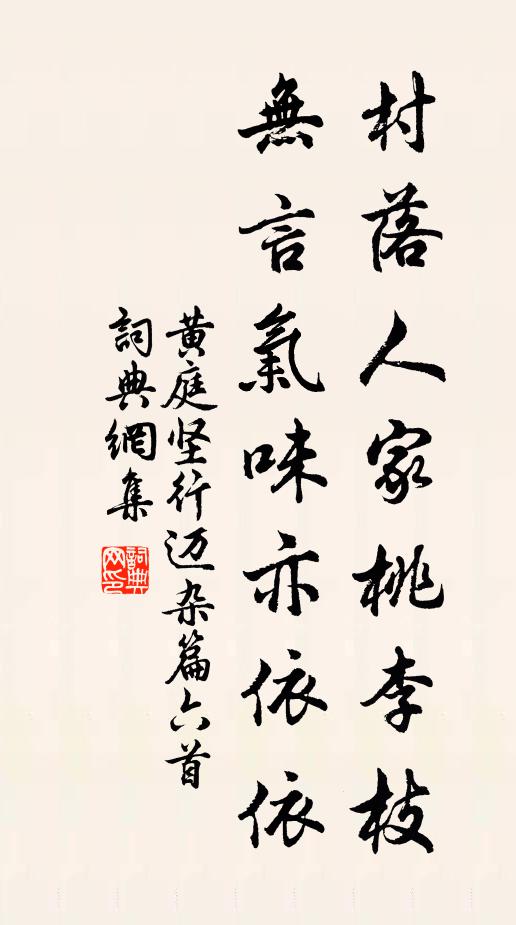 村落人家桃李枝
無言氣味亦依依
黄庭坚行迈杂篇六首
詞典網集
詞典网印